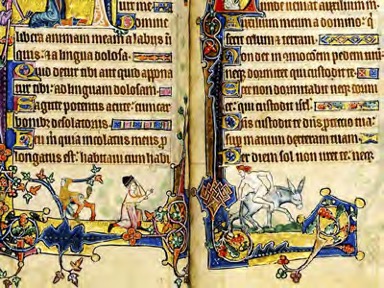 uit me:
Domine
libera animam meam a labijs i
quis: a lingua dolosa.
Quid detur tibi aut quid appona
tur tibi: ad linguam dolosam
Sagitte potentis acute: cum car
bonib; desolatorijs
Heu m quia incolatus meus pro
longatus est: habitaui cum habi
unde ueniat auxilium m
Auxilium meum a domino: q
fecit celum et terram
Non det in cōmocionem pedem tuum
neqꝫ dormitet qui custodit te
Ecce non dormitabit neqꝫ dormi
et: qui custodit isrl
Dn̄s custodit te dn̄s protectio tua:
super manum dexteram tuam
Per diem sol non uret te: neqꝫ